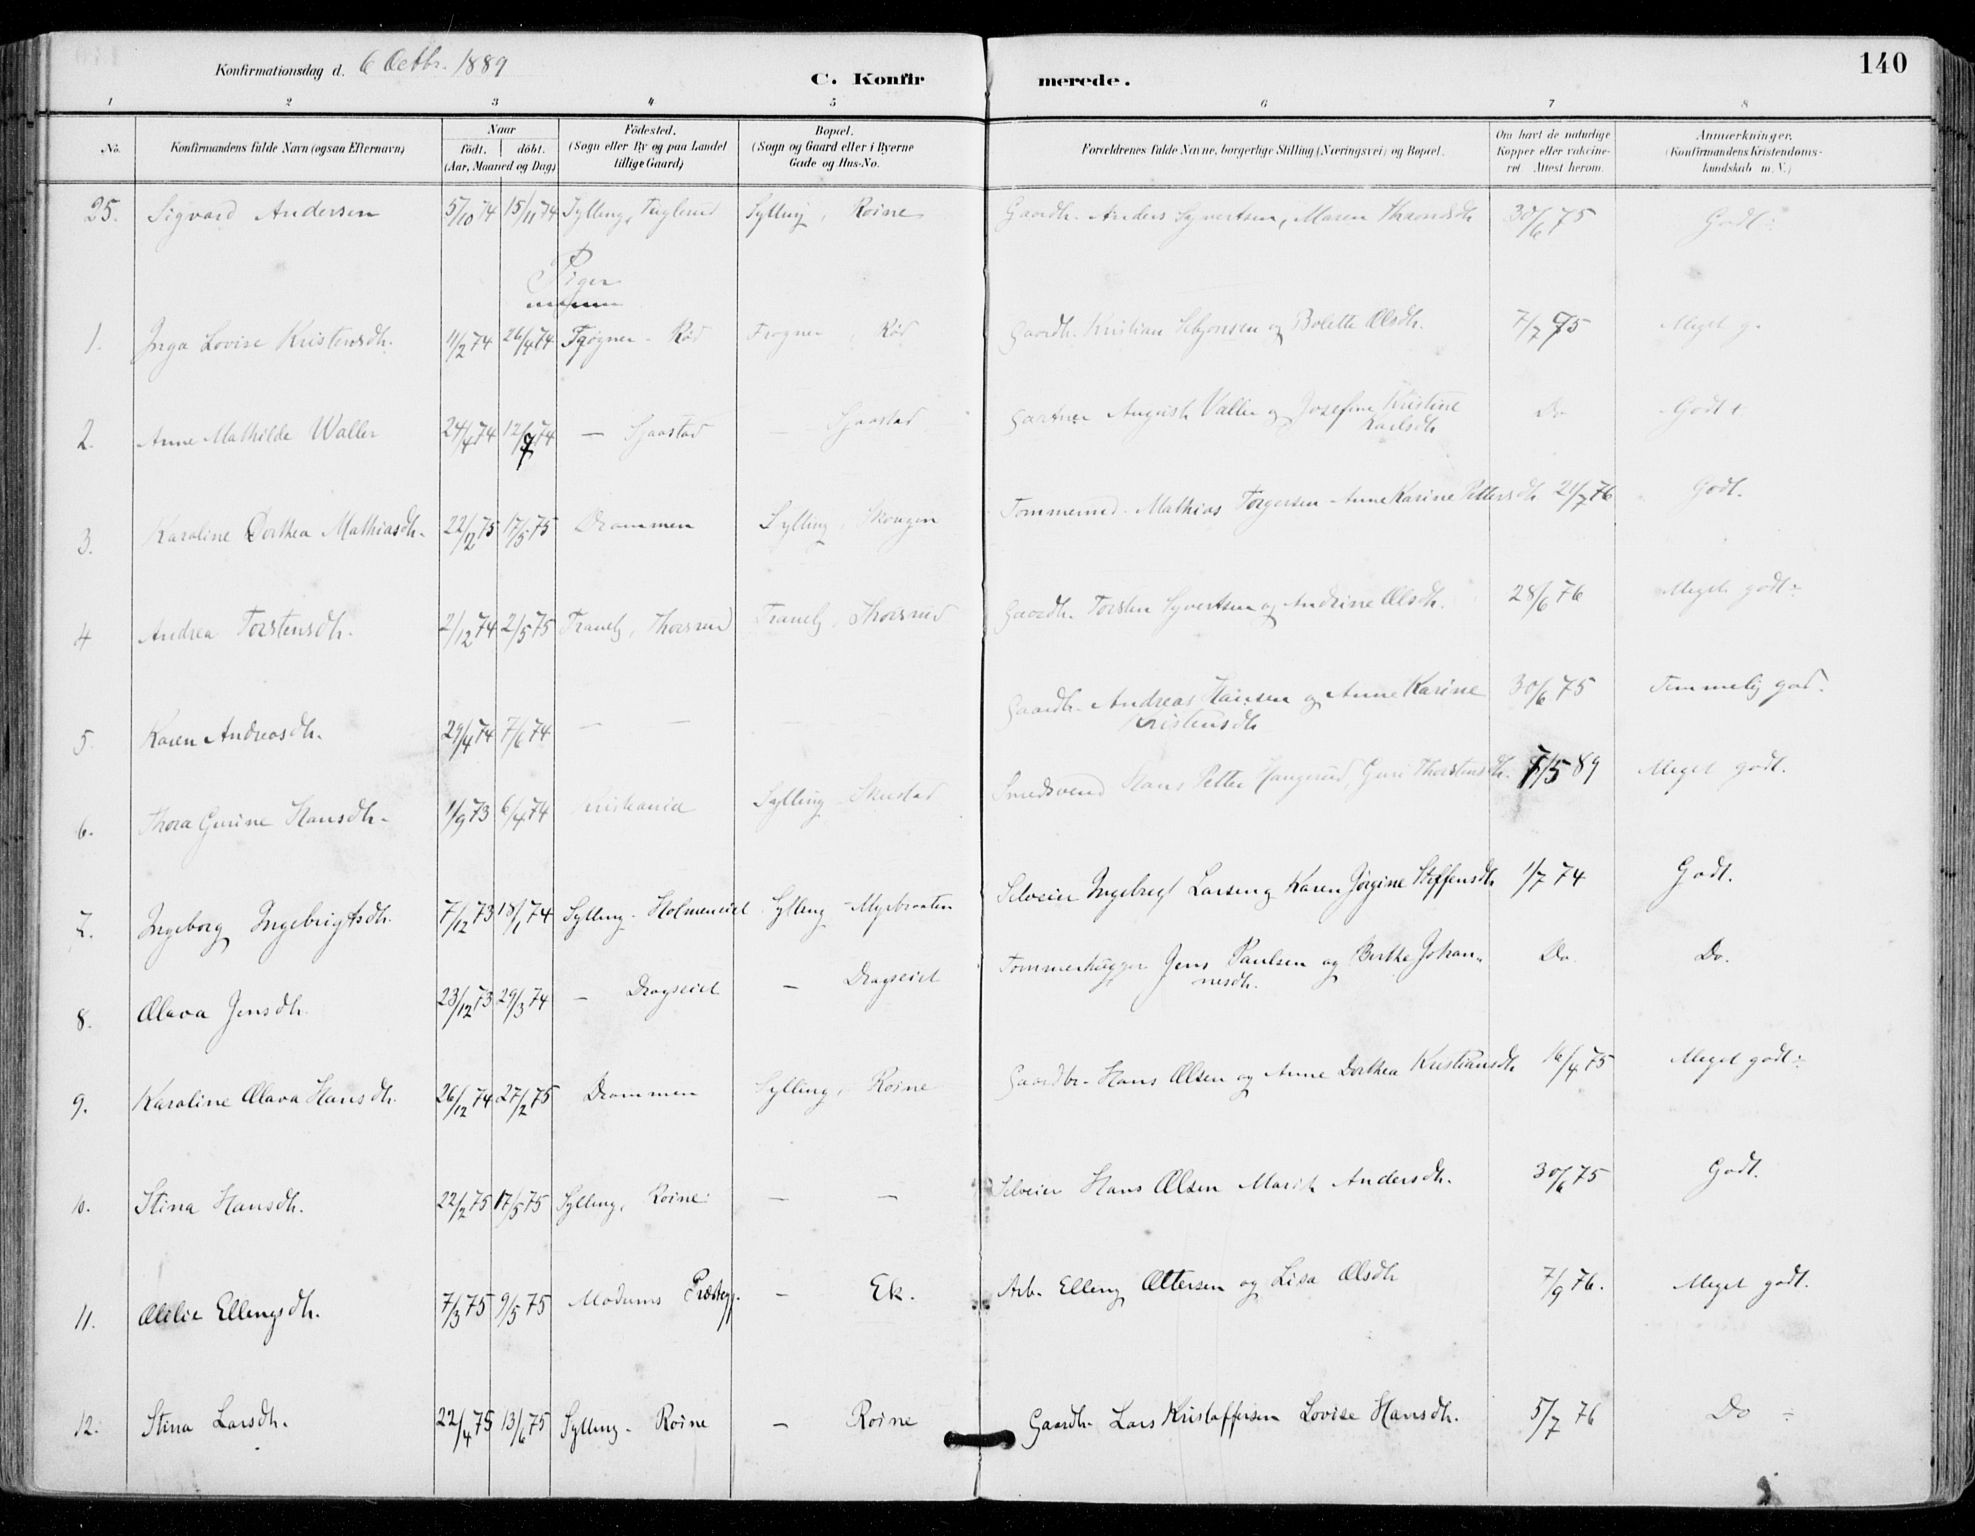 Konfirmationsdag d. 6 Octbr. 1889
C. Konfir merede. 140
1 2 3 4 5 6 7 8
No. Konfirmandens fulde Navn (ogsaa Efternavn) Naar födt. döbt. (Aar, Maaned og Dag) Födested. (Sogn eller By og paa Landet tillige Gaard) Bopæl. (Sogn og Gaard eller i Byerne Gade og Hus-No. Forældrenes fulde Navne, borgerlige Stilling (Næringsvei) og Bopæl. Om havt de naturlige Kopper eller vakcineret. Attest herom. Anmærkninger. (Konfirmandens Kristendomskundskab m. V.)
25. Sigvard Andersen 5/10 74 15/11 74 Sylling, Tuglerud Sylling, Roine Gaardb. Anders Syvertsen, Maren 30/6 75 Godt
Piger
1. Inga Lovise Kristensdh. 11/2 74 26/4 74 Frogner - Röd Frogner Röd Gaardb. Kristian og Bolette Olsdh. 7/7 75 Meget g.
2. Anne Mathilde Waller 24/4 74 12/7 74 — Sjaastad — Sjaastad Gartner August Valler og Josefine Kristine Karlsdh Do Godt
3. Karoline Dorthea Mathiasdh. 22/2 75 17/5 75 Drammen Sylling, Skougen Mathias Torgersen - Anne Karine Pettersdh 21/7 76 Godt.
4 Andrea Torstensdh. 2/12 74 2/5 75 Tranby, Thorsrud Tranby, Thorsrud Gaardb. Torsten Syvertsen og Andrine Olsdh. 28/6 76 Meget godt
5 Karen Andreasdh. 29/4 74 7/6 74 — — — Gaardb. Andreas Hansen og Anne Karine Kristensdh 30/6 75 Temmelig god.
6. Thora Gurine Hansdh. 1/9 73 6/4 74 Kristiania Sylling Skustad Smedsvend Hans Petter Haugerud, Guri Thorstensdh. 7/5 89 Meget godt.
7. Ingeborg Ingebrigtsdh. 7/12 73 18/1 74 Sylling - Holmeneiet Sylling - Myrbraaten Selveier Ingebregt Larsen og Karen Jørgine Steffensdh 1/7 74 Godt.
8. Olava Jensdh. 23/12 73 29/3 74 — Dragseiet — Dragseiet Tømmerhugger Jens Paulsen og Berthe Johannesdh. Do. Do.
9. Karoline Olava Hansdh. 26/12 74 27/2 75 Drammen Sylling, Roine Gaardbr. Hans Olsen og Anne Dorthea Kristiansdh 16/4 75 Meget godt
10. Stina Hansdh. 22/2 75 17/5 75 Sylling, Roine — — Selveier Hans Olsen Marit Andersdh. 30/6 75 Godt.
11. Ellingsdh. 7/3 75 9/5 75 Modums Præsteg. — Ek. Arb. Elling Ottersen og Lisa Olsdh 7/9 76. Meget godt.
12. Stina Larsdh. 22/4 75 13/6 75 Sylling - Roine — Roine Gaardb. Lars Kristoffersen Lovise Hansdh. 5/7 76 Do